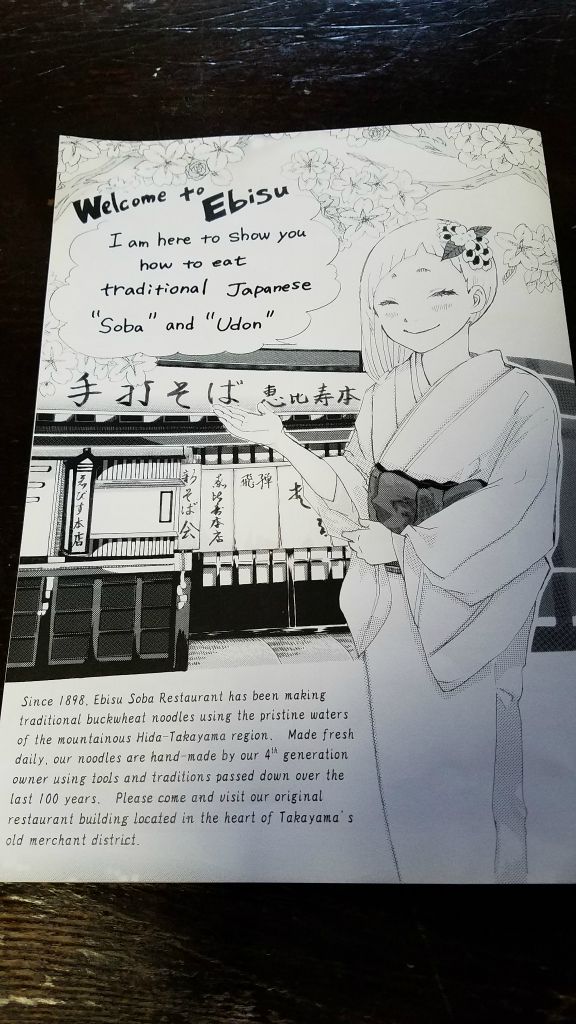 Welcome to Ebisu
I am here to show you
how to eat
traditional Japanese
"Soba" and "Udon"
手打そば 恵比寿本
ゑびす本店
新そば会
恵比寿本店
飛騨
Since 1898, Ebisu Soba Restaurant has been making
traditional buckwheat noodles using the pristine waters
of the mountainous Hida-Takayama region. Made fresh
daily, our noodles are hand-made by our 4th generation
owner using tools and traditions passed down over the
last 100 years. Please come and visit our original
restaurant building located in the heart of Takayama's
old merchant district.